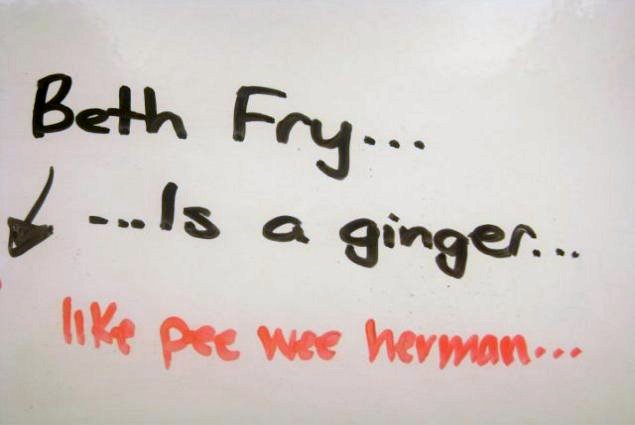 Beth Fry...
...Is a ginger...
like pee wee herman...